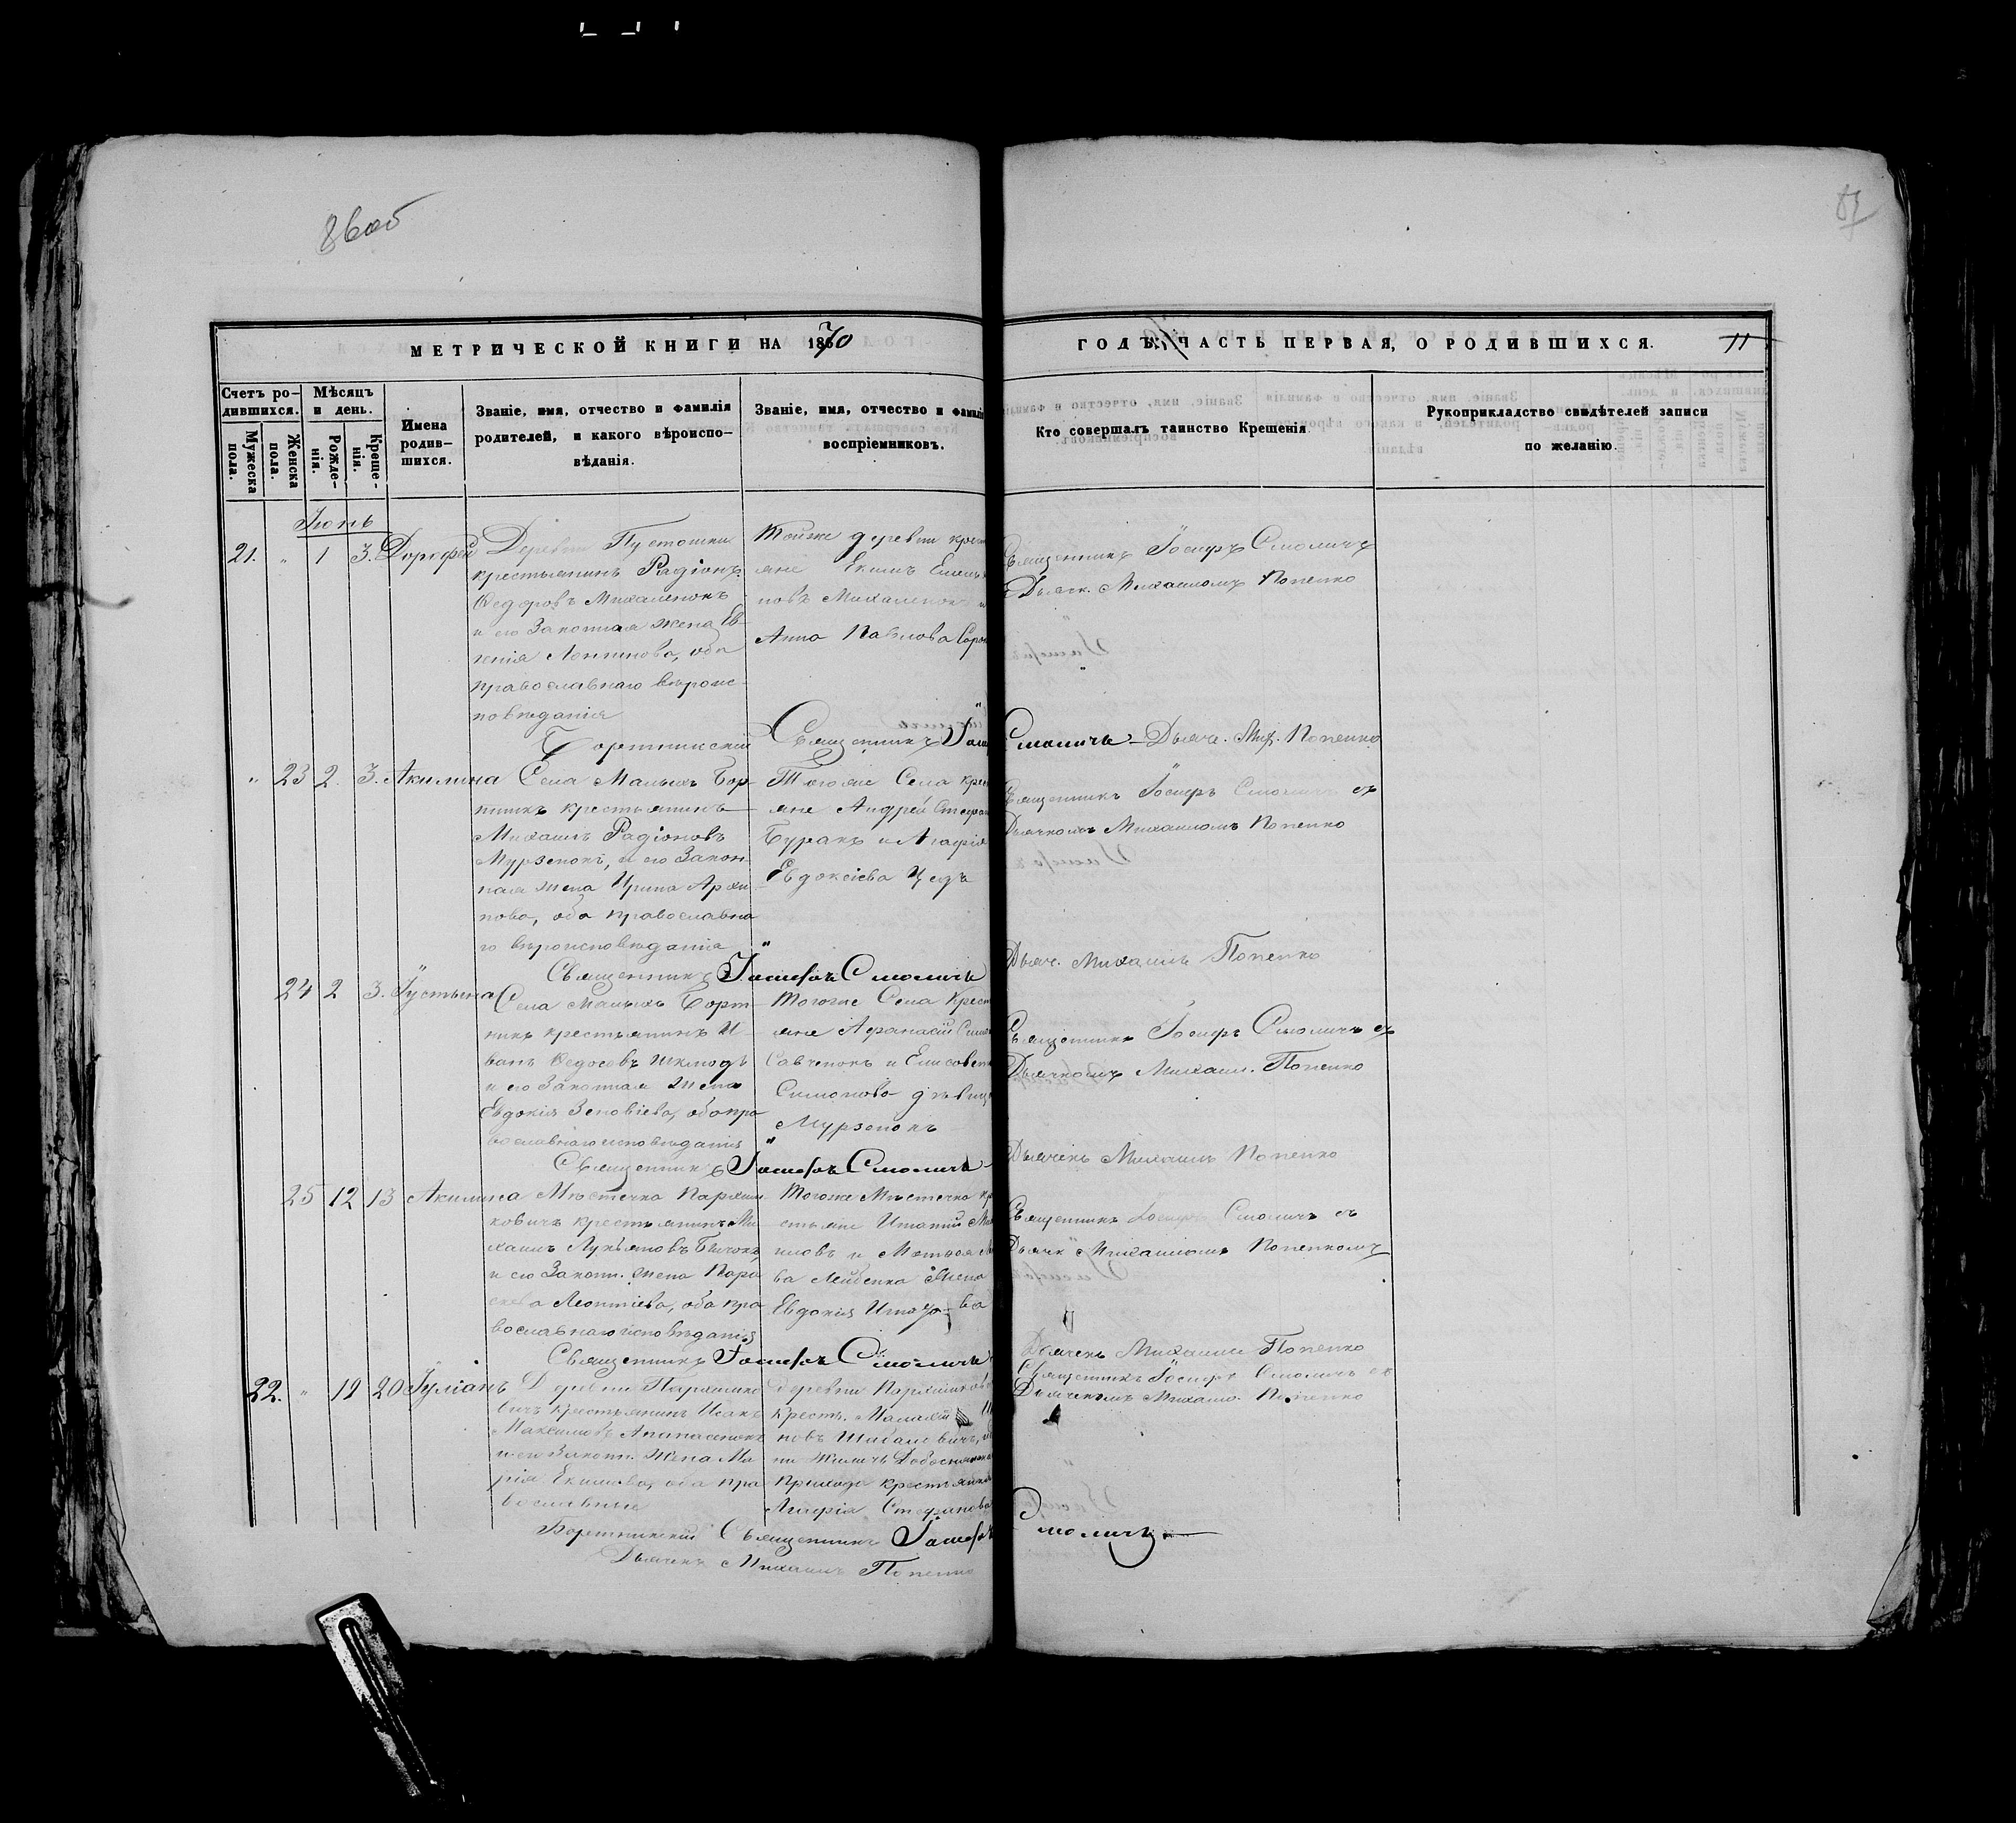 86об
87
МЕТРИЧЕСКОЙ КНИГИ НА 1870
ГОДЪ, ЧАСТЬ ПЕРВАЯ, О РОДИВШИХСЯ.
11
Счетъ ро-
дившихся.
Мѣсяцъ
и день.
Мужеска
пола.
Женска
пола.
Рожде-
нія.
Креще-
нія.
Имена
родив-
шихся.
Званіе, имя, отчество и фамилія
родителей, и какого вѣроиспо-
вѣданія.
Званіе, имя, отчество и фамилі
воспріемниковъ.
Кто совершалъ таинство Крещенія
Рукоприкладство свидѣтелей записи
по желанію.
Іюнь
21. " 1 3. Дорофей
Деревни Пустошки
крестьянинъ Радіонъ
Ѳедоровъ Михаленокъ
и его Законная жена Ев-
генія Логинова, оба
православнаго вѣроис-
повѣданія
Тойже деревни крест
яне Екимъ Емель
новъ Михаленок и
Анна Павлова
Священникъ Іосифъ Смоличъ
Дьячк. Михаиломъ Попенко
Бортникскій Священникъ Іоси
Смоличъ – Дьячк. Мих. Попенко
" 23 2. 3. Акилина
Села Малыхъ Бор-
тникъ крестьянинъ
Михаилъ Радіоновъ
Мурзенокъ, и его Закон-
ная жена Ирина Архи-
пова, оба православна
го вѣроисповѣданія
Тогоже Села крес
яне Андрей Стефан
Буракъ и Агафія
Евдокіева
Священникъ Іосифъ Смоличъ съ
Дьячкомъ Михаиломъ Попенко
Священникъ Іосифъ Смоличъ
Дьяч. Михаилъ Попенко
24 2 3. Іустына
Села Малыхъ Борт-
никъ крестьянинъ И-
ванъ Ѳедосовъ
и его Законная жена
Евдокія Зеновіева, оба пра
вославнаго исповѣданія
Тогоже Села Крест
яне Афанасій
Савченокъ и Елисавет
Симонова дѣвиц
Мурзенокъ
Священникъ Іосифъ Смоличъ съ
Дьячкомъ Михаил. Попенко
Священникъ Іосифъ Смоличъ
Дьячекъ Михаилъ Попенко
25 12 13 Акилина
Мѣстечка Пархим
ковичъ крестьянинъ Ми
хаилъ Лукьяновъ
и его Законн. жена Пара
скева Леонтіева, оба пра
вославнаго исповѣданія
Тогоже Мѣстечка кр
стьяне Игнатій
Евдокія
Священникъ Іосифъ Смоличъ съ
Дьячк Михаиломъ Попенкомъ
Священникъ Іосифъ Смоличъ
Дьячекъ Михаилъ Попенко
22. " 19 20 Іуліанъ
Деревни Пархимко
вичъ крестьянинъ Исакъ
Максимовъ Апанасенокъ
и его Законн. жена Ма
рія Екимова, оба пра
вославные
Деревни Пархимков
крест.
Прихода крестьянка
Агафія Стефанова
Священникъ Іосифъ Смоличъ съ
Дьячкомъ Михаил. Попенко
Бортникскій Священникъ Іосифъ
Смоличъ
Дьячекъ Михаилъ Попенко